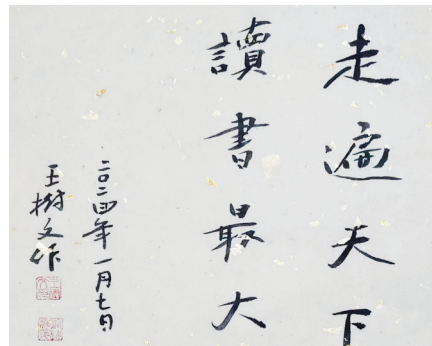 走遍天下
讀書最大
二〇二四年一月七日
王樹文作